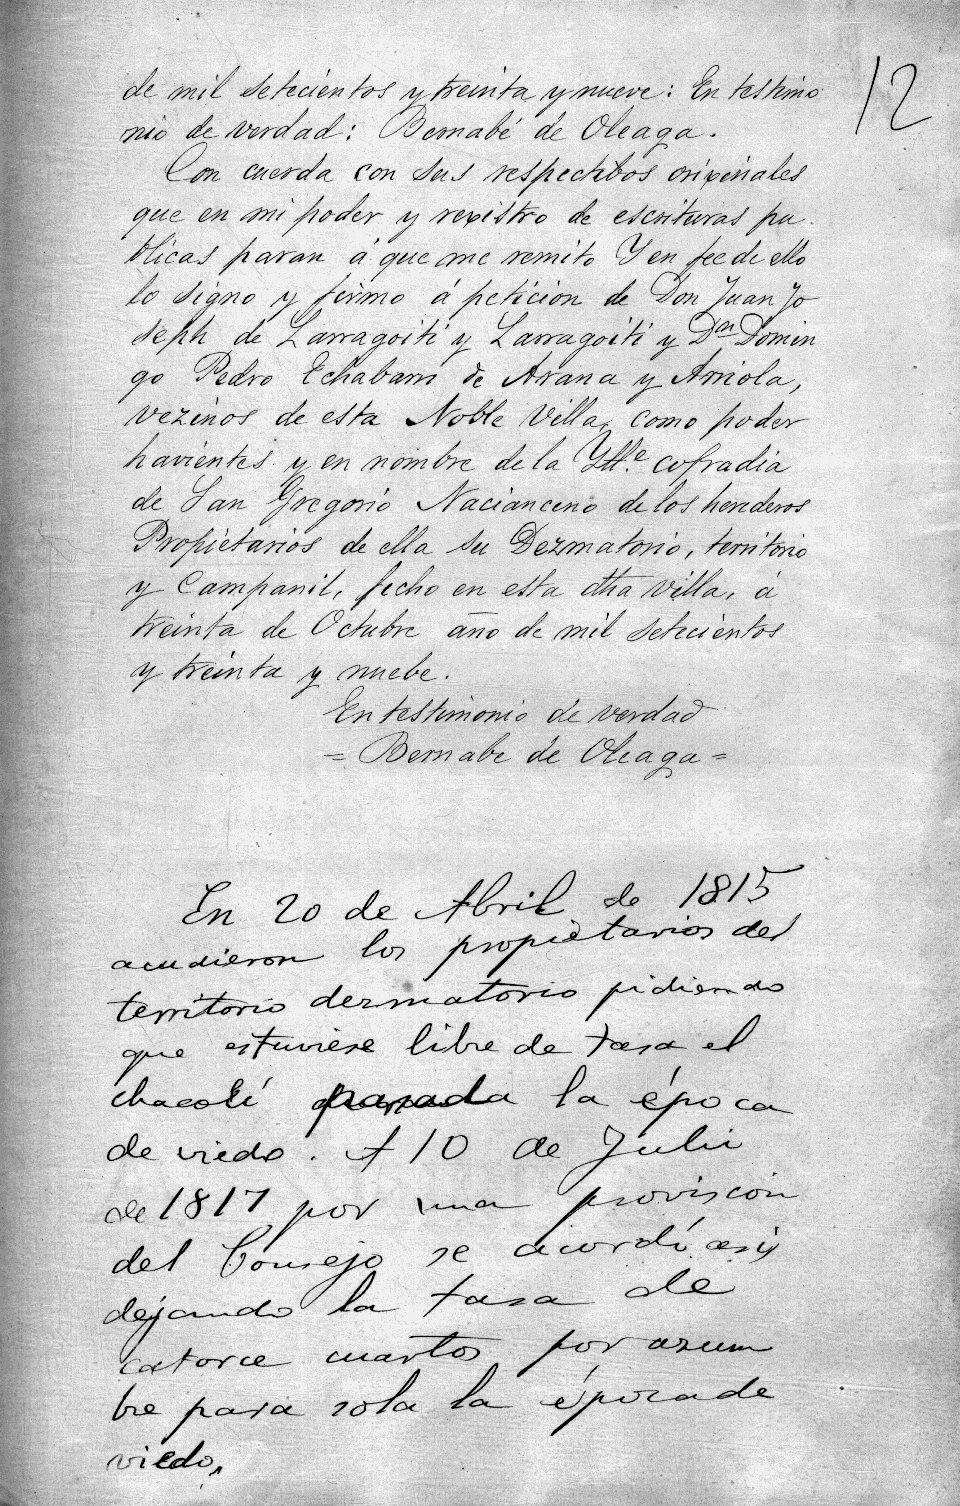 12
de mil setecientos y treinta y nueve: En testimo
nio de verdad: Bernabé de Oleaga.
Con cuerda con sus respectibos orixinales
que en mi poder y rexistro de escrituras pu
blicas paran á que me remito Y en fee de ello
lo signo y firmo á peticion de Don Juan Jo
seph de Larragoiti y Larragoiti y Dn Domin
go Pedro Echabarri de Arana y Arriola,
vezinos de esta Noble Villa, como poder
havientes y en nombre de la Ylle. cofradia
de San Gregorio Nacianceno de los herederos
Propietarios de ella su Dezmatorio, territorio
y Campanil, fecho en esta dha villa, á
treinta de Octubre año de mil setecientos
y treinta y nuebe.
En testimonio de verdad
= Bernabe de Oleaga =
En 20 de Abril de 1815
acudieron los propietarios del
territorio dezmatorio pidiendo
que estuviese libre de tasa el
chacolí pasada la época
de viedo. A 10 de Julii
de 1817 por una proviscion
del Consejo se acordó asis
dejando la tasa de
catorce cuartos por azum
bre para sola la época de
viedo,